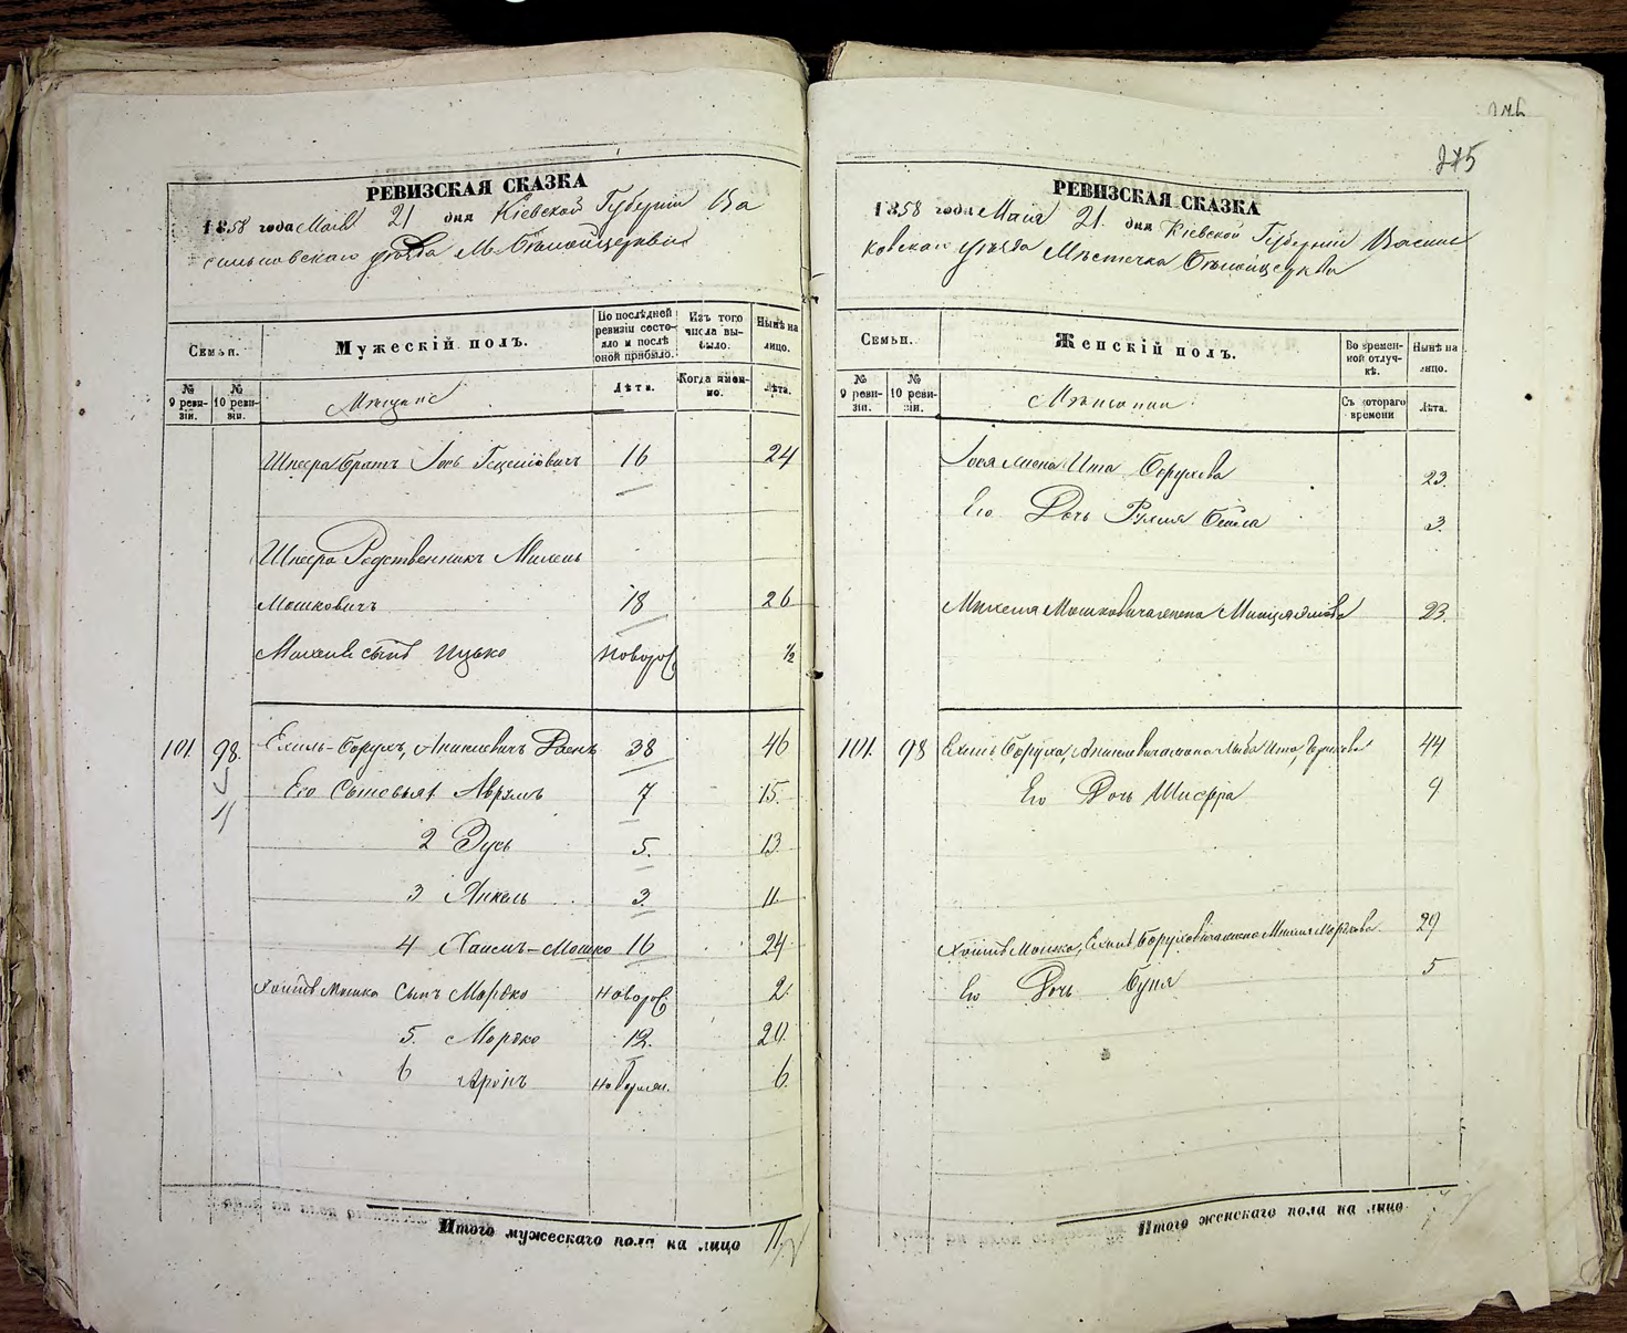 275
РЕВИЗСКАЯ СКАЗКА
1858 года Маія 21 дня Кіевской Губерніи Ва
сильковскаго уѣзда М. Бѣлойцеркви
Семьи.
Мужескій полъ.
По послѣдней ревизіи состояло и послѣ оной прибыло.
Изъ того числа выбыло.
Нынѣ на лицо.
№ 9 ревизіи.
№ 10 ревизіи.
Мѣщане
Лѣта.
Когда именно.
Лѣта.
Шпера Братъ Іось 16 24
Шпера Родственникъ Михель
Мошковичъ 18 26
Михеля сынъ Ицько новорож 1/2
101. 98. Ехиль-Борухъ, 38 46
Его Сыновья 1 Аврумъ 7 15.
2 Зусь 5. 13.
3 Янкель 3. 11.
4 Хаимъ-Мошко 16 24
Хаима Мошка Сынъ Мордко новорож. 2.
5. Мордко 12. 20.
6 Аронъ новорож. 6.
Итого мужескаго пола на лицо 11
РЕВИЗСКАЯ СКАЗКА
1858 года Маія 21. дня Кіевской Губерніи Василь
ковскаго уѣзда Мѣстечка Бѣлойцеркви
Семьи.
Женскій полъ.
Во временной отлучкѣ.
Нынѣ на лицо.
№ 9 ревизіи.
№ 10 ревизіи.
Мѣщанки
Съ котораго времени
Лѣта.
Іося жена Ита Борухова 23.
Его Дочь Бейла 3.
Михеля Мошковича жена 23.
101. 98 Ехиль Боруха, жена Ита, 44
Его Дочь Шифра 9
Хаима Мошка, Ехиль Боруховича жена 29
Его Дочь Буня 5
Итого женскаго пола на лицо 7